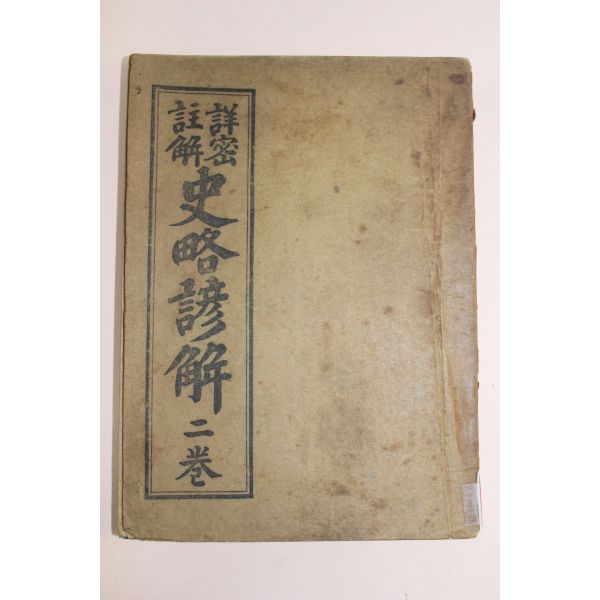 詳密
註解
史略諺解
二巻